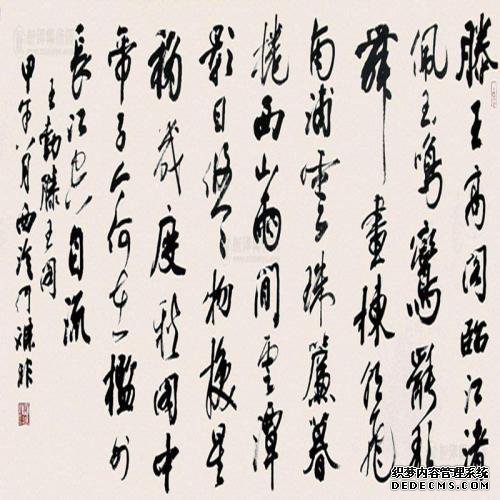 滕王高阁临江渚
佩玉鸣鸾罢歌
舞画栋朝飞
南浦雲珠簾暮
捲西山雨閒雲潭
影日悠悠物换星
移几度秋阁中
帝子今何在槛外
長江空自流
王勃滕王阁
甲午八月西泠
织梦内容管理系统
DEDECMS.COM